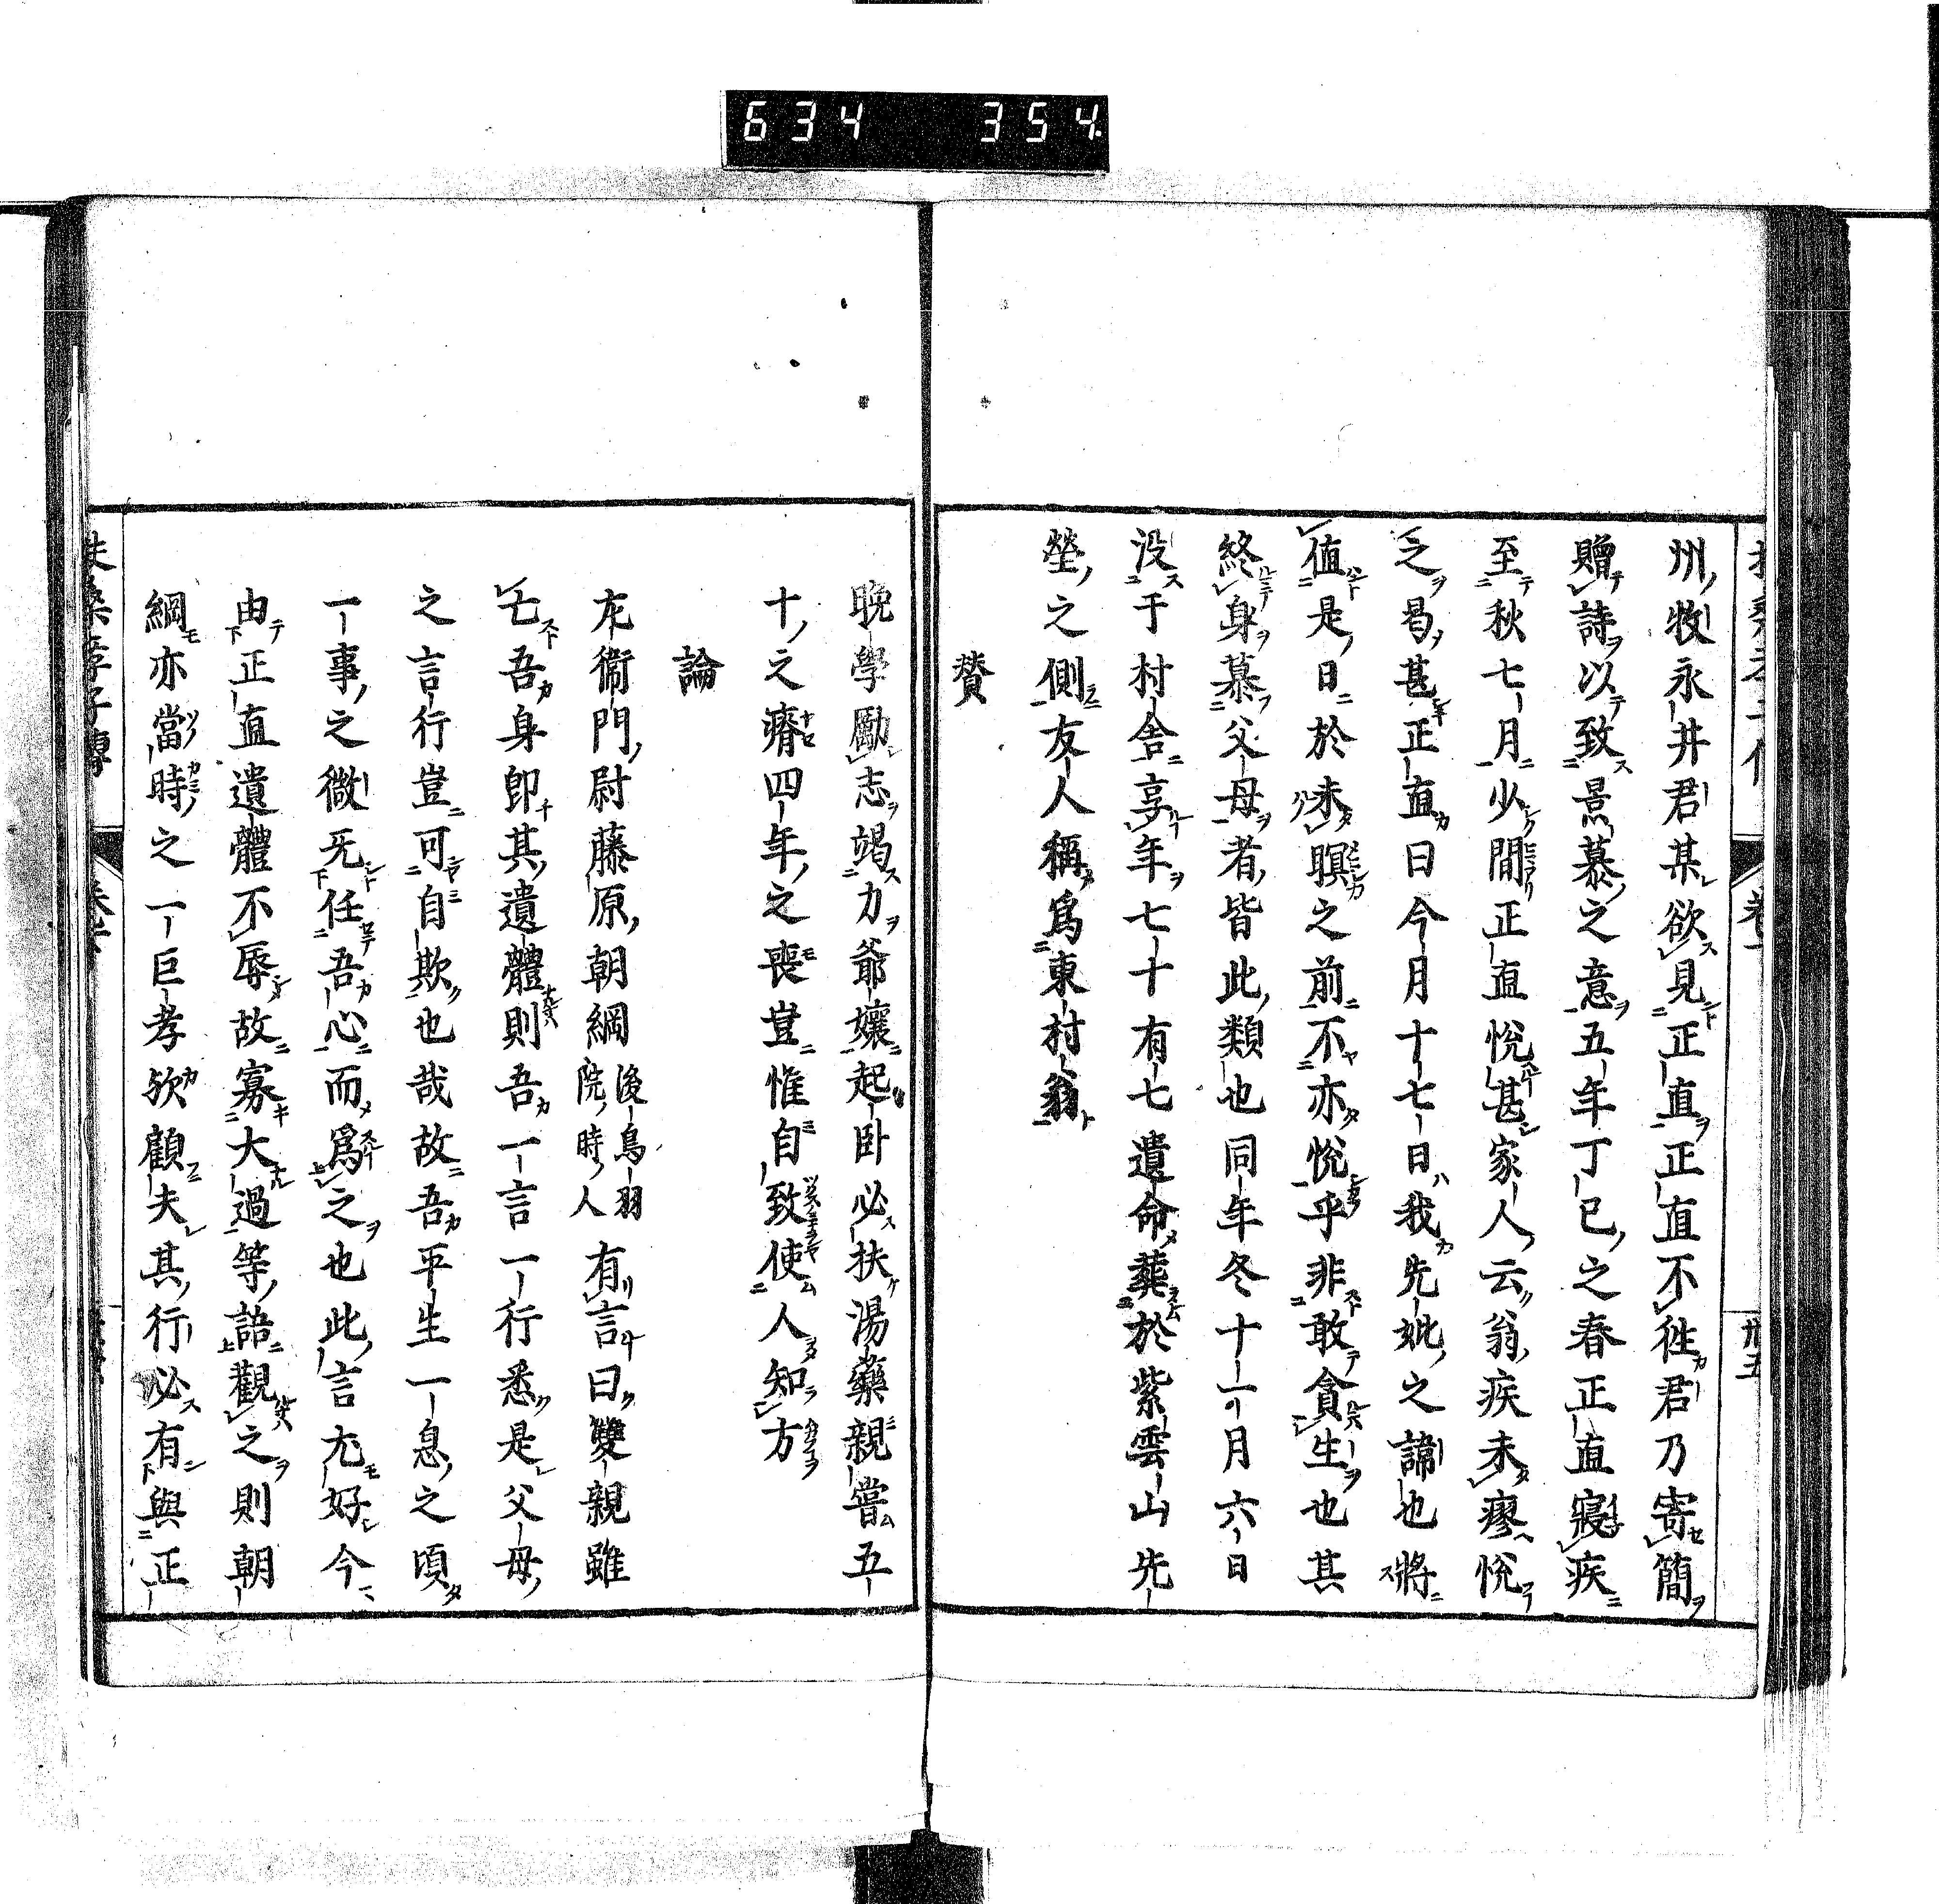 634 354
州牧永井君某欲見正直正直不往君乃寄簡
贈詩以致景慕之意五年丁巳之春正直寢疾
至秋七月少間正直悅甚家人云翁疾未瘳悅
之曷甚正直曰今月十七日我先妣之諱也將
值是日於未瞑之前不亦悅乎非敢貪生也其
終身慕父母者皆此類也同年冬十一月六日
没于村舍享年七十有七遺命葬於紫雲山先
塋之側友人稱爲東村翁
賛
晩學勵志竭力爺孃起卧必扶湯藥親嘗五
十之瘠四年之喪豈惟自致使人知方
論
左衞門尉藤原朝綱後鳥羽院時人有言曰雙親雖
亡吾身卽其遺體則吾一言一行悉是父母
之言行豈可自欺也哉故吾平生一息之頃
一事之微无任吾心而爲之也此言尤好今
由正直遺體不辱故寡大過等語觀之則朝
綱亦當時之一巨孝欤顧夫其行必有與正
扶桑孝子傳